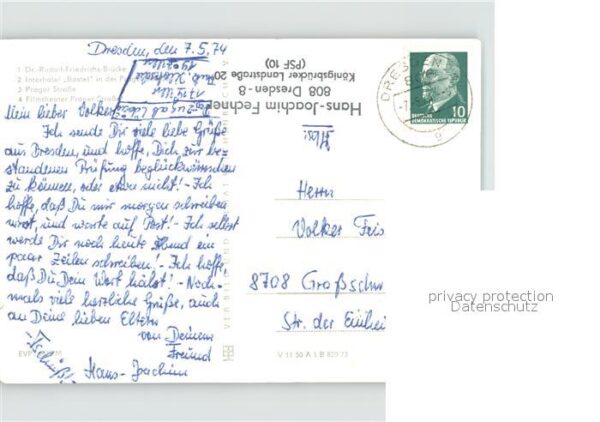 Dresden, den 7.5.74
1 Dr.-Rudolf-Friedrichs-Brücke
2 Interhotel „Bastei" in der Prager
3 Prager Straße
4 Filmtheater Prager Straße
Mein lieber Volker!
Ich sende Dir viele liebe Grüße
aus Dresden, und hoffe, Dich zur be-
standenen Prüfung beglückwünschen
zu können, oder etwa nicht! - Ich
hoffe, daß Du mir morgen schreiben
wirst, und warte auf Post! - Ich selbst
werde Dir noch heute Abend ein
paar Zeilen schreiben! - Ich hoffe,
daß Du Dein Wort hälst! - Noch-
mals viele herzliche Grüße, auch
an Deine lieben Eltern
von Deinem
Freund
Hans-Joachim
Tschüß!
EVP M
Hans-Joachim Fechner
808 Dresden-8
Königsbrücker Landstraße 20
(PSF 10)
Abs:
DRESDEN
10
DEUTSCHE
DEMOKRATISCHE REPUBLIK
Herrn
Volker Fris
8708 Großschw
Str. der Einhei
V 11 50 A 1 B 829/73
privacy protection
Datenschutz